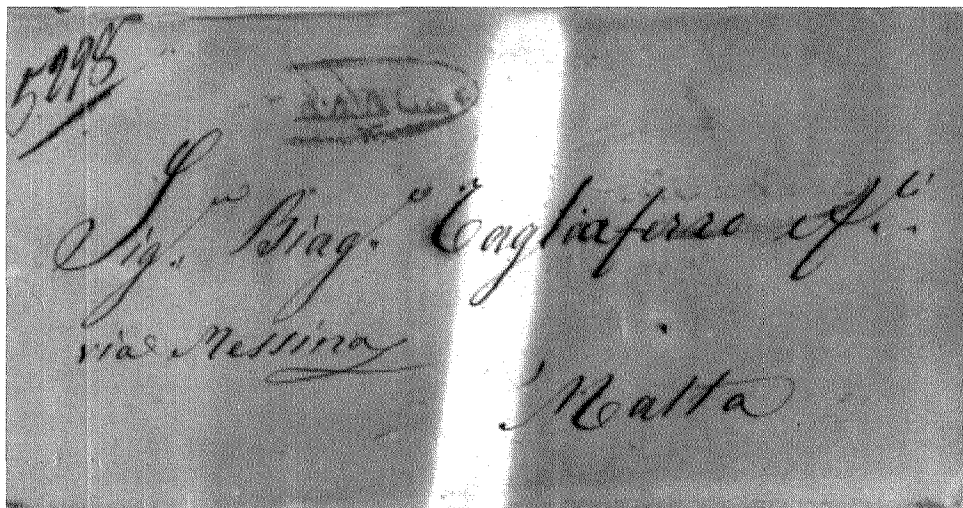 5998
Sig.ri Biag.o Tagliaferro e f.li
via Messina
Malta